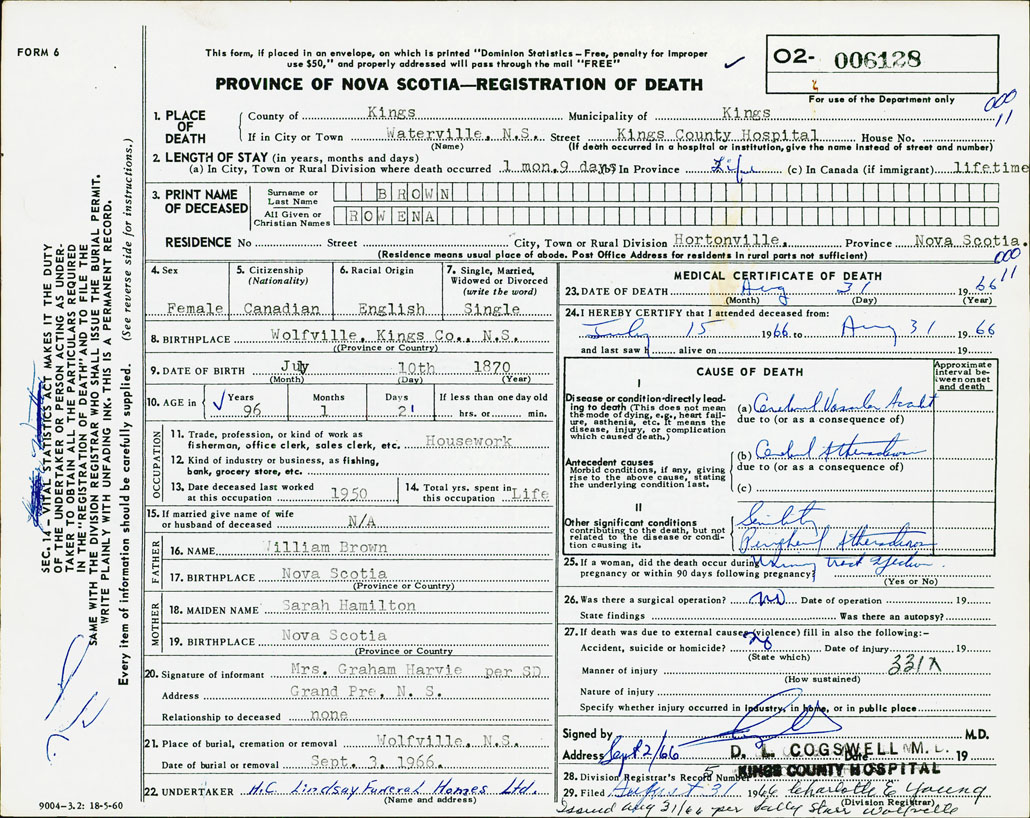 FORM 6
This form, if placed in an envelope, on which is printed "Dominion Statistics – Free, penalty for improper
use $50," and properly addressed will pass through the mail "FREE"
O2- 006128
For use of the Department only
PROVINCE OF NOVA SCOTIA—REGISTRATION OF DEATH
000
11
1. PLACE OF DEATH
County of Kings Municipality of Kings
If in City or Town Waterville, N.S. Street Kings County Hospital House No.
(Name) (If death occurred in a hospital or institution, give the name instead of street and number)
2. LENGTH OF STAY (in years, months and days)
(a) In City, Town or Rural Division where death occurred 1 mon. 9 days (b) In Province Life (c) In Canada (if immigrant) lifetime
3. PRINT NAME OF DECEASED
Surname or Last Name BROWN
All Given or Christian Names ROWENA
RESIDENCE No Street City, Town or Rural Division Hortonville, Province Nova Scotia.
(Residence means usual place of abode. Post Office Address for residents in rural parts not sufficient)
000
11
4. Sex
Female
5. Citizenship
(Nationality)
Canadian
6. Racial Origin
English
7. Single, Married,
Widowed or Divorced
(write the word)
Single
8. BIRTHPLACE Wolfville, Kings Co., N.S.
(Province or Country)
9. DATE OF BIRTH July 10th 1870
(Month) (Day) (Year)
10. AGE in Years Months Days If less than one day old
96 1 21 hrs. or min.
OCCUPATION
11. Trade, profession, or kind of work as
fisherman, office clerk, sales clerk, etc. Housework
12. Kind of industry or business, as fishing,
bank, grocery store, etc.
13. Date deceased last worked
at this occupation 1950
14. Total yrs. spent in
this occupation Life
15. If married give name of wife
or husband of deceased N/A
FATHER
16. NAME William Brown
17. BIRTHPLACE Nova Scotia
(Province or Country)
MOTHER
18. MAIDEN NAME Sarah Hamilton
19. BIRTHPLACE Nova Scotia
(Province or Country
20. Signature of informant Mrs. Graham Harvie per SD
Address Grand Pre, N. S.
Relationship to deceased none
21. Place of burial, cremation or removal Wolfville, N.S.
Date of burial or removal Sept. 3, 1966.
22. UNDERTAKER H.C. Lindsay Funeral Homes Ltd.
(Name and address)
9004–3.2: 18-5-60
MEDICAL CERTIFICATE OF DEATH
23. DATE OF DEATH Aug 31 1966
(Month) (Day) (Year)
24. I HEREBY CERTIFY that I attended deceased from:
July 15 1966 to Aug 31 1966
and last saw h alive on 19
CAUSE OF DEATH
Approximate
interval be-
tween onset
and death
I
Disease or condition directly lead-
ing to death (This does not mean
the mode of dying, e.g., heart fail-
ure, asthenia, etc. It means the
disease, injury, or complication
which caused death.)
(a) Cerebral Vascular Accdt
due to (or as a consequence of)
Antecedent causes
Morbid conditions, if any, giving
rise to the above cause, stating
the underlying condition last.
(b) Cerebral
due to (or as a consequence of)
(c)
II
Other significant conditions
contributing to the death, but not
related to the disease or condi-
tion causing it.
Senility
Peripheral
Urinary tract infection
25. If a woman, did the death occur during
pregnancy or within 90 days following pregnancy?
(Yes or No)
26. Was there a surgical operation? no Date of operation 19
State findings Was there an autopsy?
27. If death was due to external causes (violence) fill in also the following:–
Accident, suicide or homicide? no Date of injury 19
(State which)
Manner of injury 331X
(How sustained)
Nature of injury
Specify whether injury occurred in industry, in home, or in public place
Signed by M.D.
Address Sept 2/66 Date 19
D. L. COGSWELL M.D.
KINGS COUNTY HOSPITAL
28. Division Registrar's Record Number 5
29. Filed August 31 1966 Charlotte E Young
(Division Registrar)
Issued Aug 31/66 per Sally Starr Wolfville
SEC. 14 – VITAL STATISTICS ACT MAKES IT THE DUTY
OF THE UNDERTAKER OR PERSON ACTING AS UNDER-
TAKER TO OBTAIN ALL THE PARTICULARS REQUIRED
IN THE "REGISTRATION OF DEATH" AND TO FILE THE
SAME WITH THE DIVISION REGISTRAR WHO SHALL ISSUE THE BURIAL PERMIT.
WRITE PLAINLY WITH UNFADING INK. THIS IS A PERMANENT RECORD.
Every item of information should be carefully supplied. (See reverse side for instructions.)